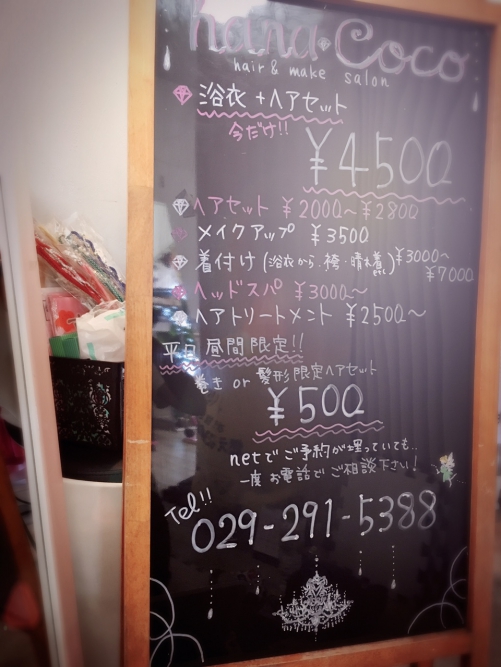 hana Coco
hair & make salon
浴衣 + ヘアセット
今だけ!! ¥4500
ヘアセット ¥2000～¥2800
メイクアップ ¥3500
着付け (浴衣から、袴・晴れ着) ¥3000～¥7000
ヘッドスパ ¥3000～
ヘアトリートメント ¥2500～
平日昼間限定!!
巻き or 髪形限定ヘアセット
¥500
netでご予約が埋っていても..
一度お電話でご相談下さい!
Tel!!
029-291-5388